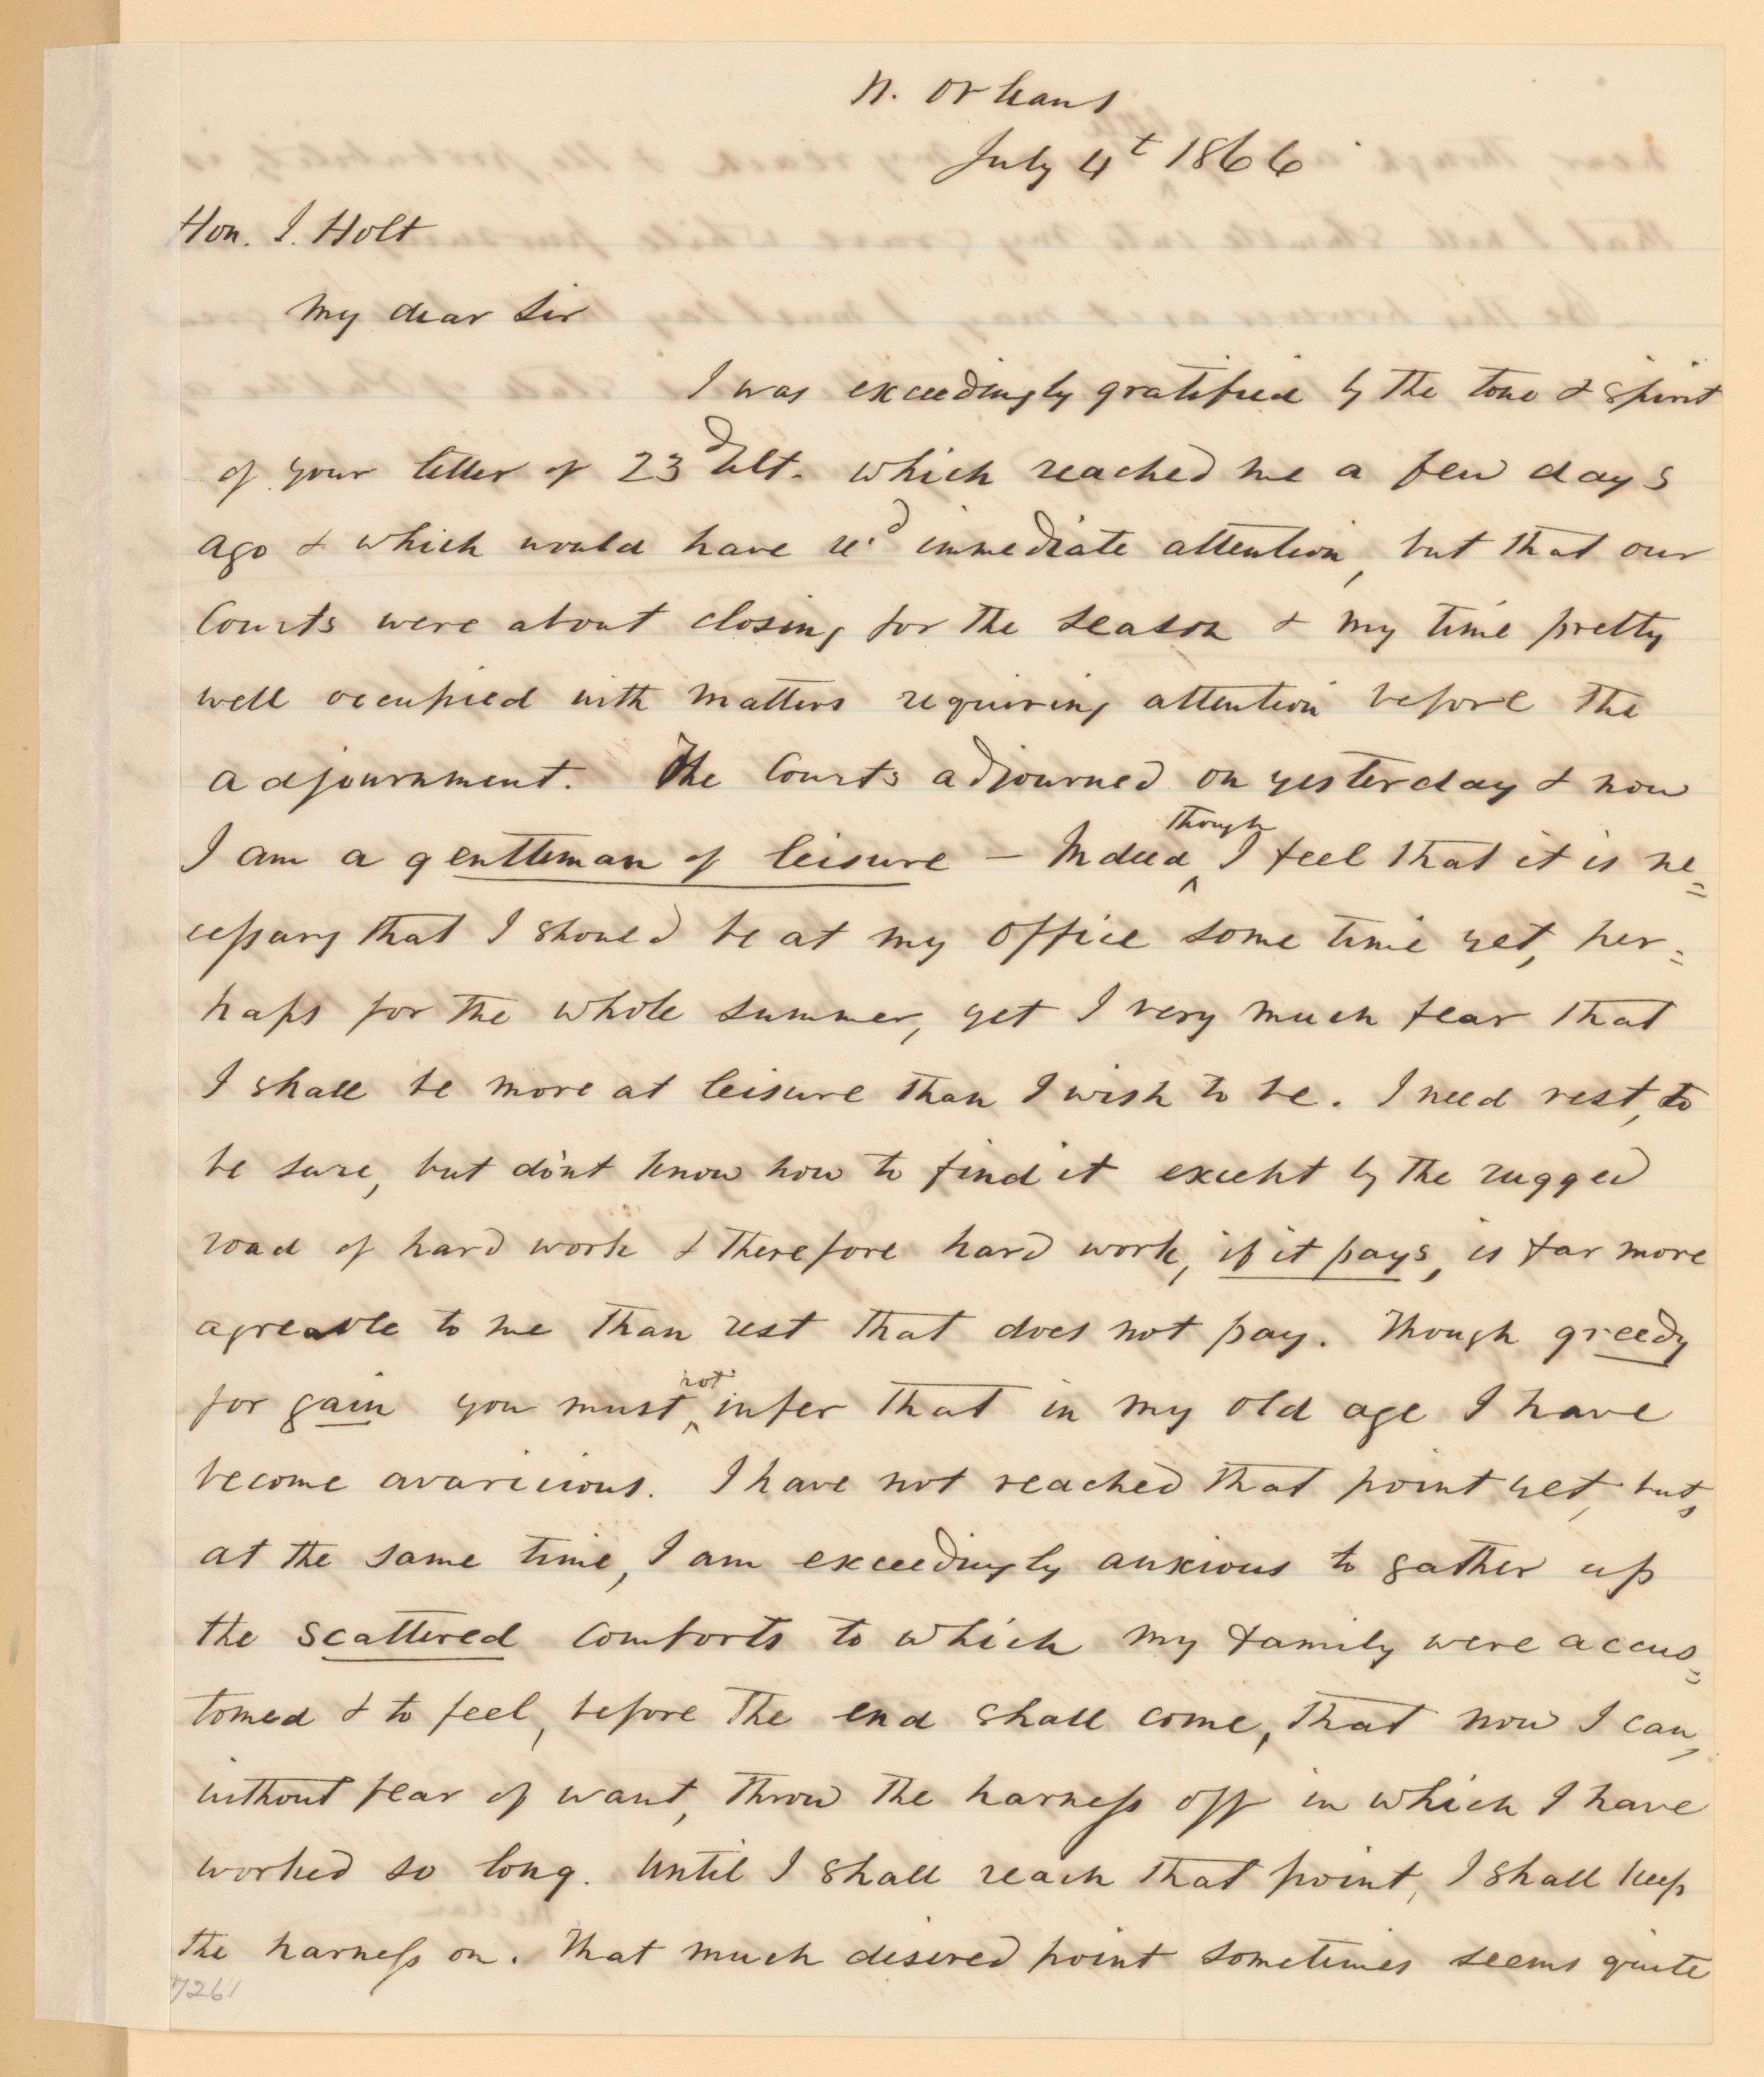 N. Orleans
July 4t 1866
Hon. J. Holt
My dear Sir
I was exceedingly gratified by the tone & spirit
of your letter of 23d Ult. which reached me a few days
ago & which would have re'd immediate attention, but that our
Courts were about closing for the season & my time pretty
well occupied with matters requiring attention before the
adjournment. The Courts adjourned on yesterday & now
I am a gentleman of leisure – Indeed though I feel that it is ne=
cessary that I should be at my office some time yet, per=
haps for the whole summer, yet I very much fear that
I shall be more at leisure than I wish to be. I need rest, to
be sure, but do'nt know how to find it except by the rugged
road of hard work & therefore hard work, if it pays, is far more
agreable to me than rest that does not pay. Though greedy
for gain you must not infer that in my old age I have
become avaricious. I have not reached that point yet, but,
at the same time, I am exceedingly anxious to gather up
the scattered comforts to which my family were accus=
tomed & to feel, before the end shall come, that now I can,
without fear of want, throw the harness off in which I have
worked so long. Until I shall reach that point, I shall keep
the harness on. That much desired point sometimes seems quite
7261